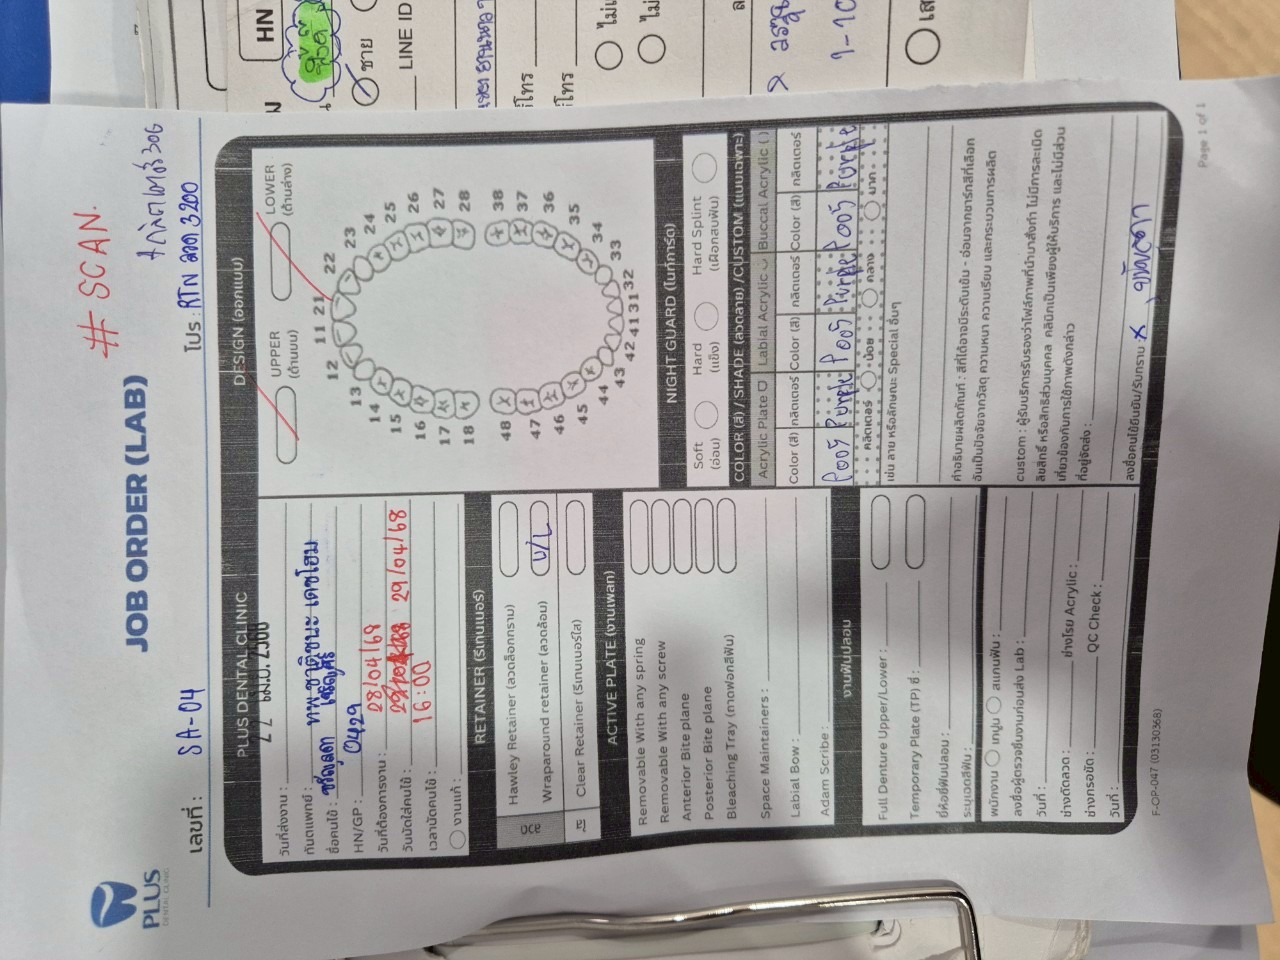 PLUS
DENTAL CLINIC
JOB ORDER (LAB)
# SCAN.
เลขที่ : SA-04
โปร : RTN ลวด 3200
PLUS DENTAL CLINIC
วันที่ส่งงาน :
22 เม.ย. 2568
ทันตแพทย์ :
ชื่อคนไข้ :
HN/GP : 0429
วันที่ต้องการงาน : 28/04/68
วันนัดใส่คนไข้ : 29/04/68
เวลานัดคนไข้ : 16:00
งานแก้ :
RETAINER (รีเทนเนอร์)
ลวด
Hawley Retainer (ลวดล็อกกราม)
Wraparound retainer (ลวดล้อม) U/L
ใส
Clear Retainer (รีเทนเนอร์ใส)
ACTIVE PLATE (งานเพลท)
Removable With any spring
Removable With any screw
Anterior Bite plane
Posterior Bite plane
Bleaching Tray (ถาดฟอกสีฟัน)
Space Maintainers :
Labial Bow :
Adam Scribe :
งานฟันปลอม
Full Denture Upper/Lower :
Temporary Plate (TP) ซี่ :
ยี่ห้อซี่ฟันปลอม :
ระบุเฉดสีฟัน :
พนักงาน เทปูน สแกนฟัน :
ลงชื่อผู้ตรวจชิ้นงานก่อนส่ง Lab :
วันที่ :
ช่างดัดลวด : ช่างโรย Acrylic :
ช่างกรอขัด : QC Check :
วันที่ :
DESIGN (ออกแบบ)
UPPER
(ด้านบน)
LOWER
(ด้านล่าง)
11 21
12 22
13 23
14 24
15 25
16 26
17 27
18 28
48 38
47 37
46 36
45 35
44 34
43 33
42 32
41 31
NIGHT GUARD (ไนท์การ์ด)
Soft Hard Hard Splint
(อ่อน) (แข็ง) (เฝือกสบฟัน)
COLOR (สี) / SHADE (ลวดลาย) /CUSTOM (แบบเฉพาะ)
Acrylic Plate U Labial Acrylic U Buccal Acrylic ( )
Color (สี) กลิตเตอร์ Color (สี) กลิตเตอร์ Color (สี) กลิตเตอร์
P005 Purple P005 Purple P005 Purple
กลิตเตอร์ น้อย กลาง มาก
เช่น ลาย หรือลักษณะ Special อื่นๆ
คำอธิบายผลิตภัณฑ์ : สีที่ได้อาจมีระดับเข้ม - อ่อนจากชาร์ทสีที่เลือก
อันเป็นปัจจัยจากวัสดุ ความหนา ความเรียบ และกระบวนการผลิต
custom : ผู้รับบริการรับรองว่าไฟล์ภาพที่นำมาสั่งทำ ไม่มีการละเมิด
ลิขสิทธิ์ หรือสิทธิส่วนบุคคล คลินิกเป็นเพียงผู้ให้บริการ และไม่มีส่วน
เกี่ยวข้องกับการใช้ภาพดังกล่าว
ที่อยู่จัดส่ง :
ลงชื่อคนไข้ยืนยัน/รับทราบ X
F-OP-047 (03130368)
Page 1 of 1
HN
ชาย
LINE ID
1-10